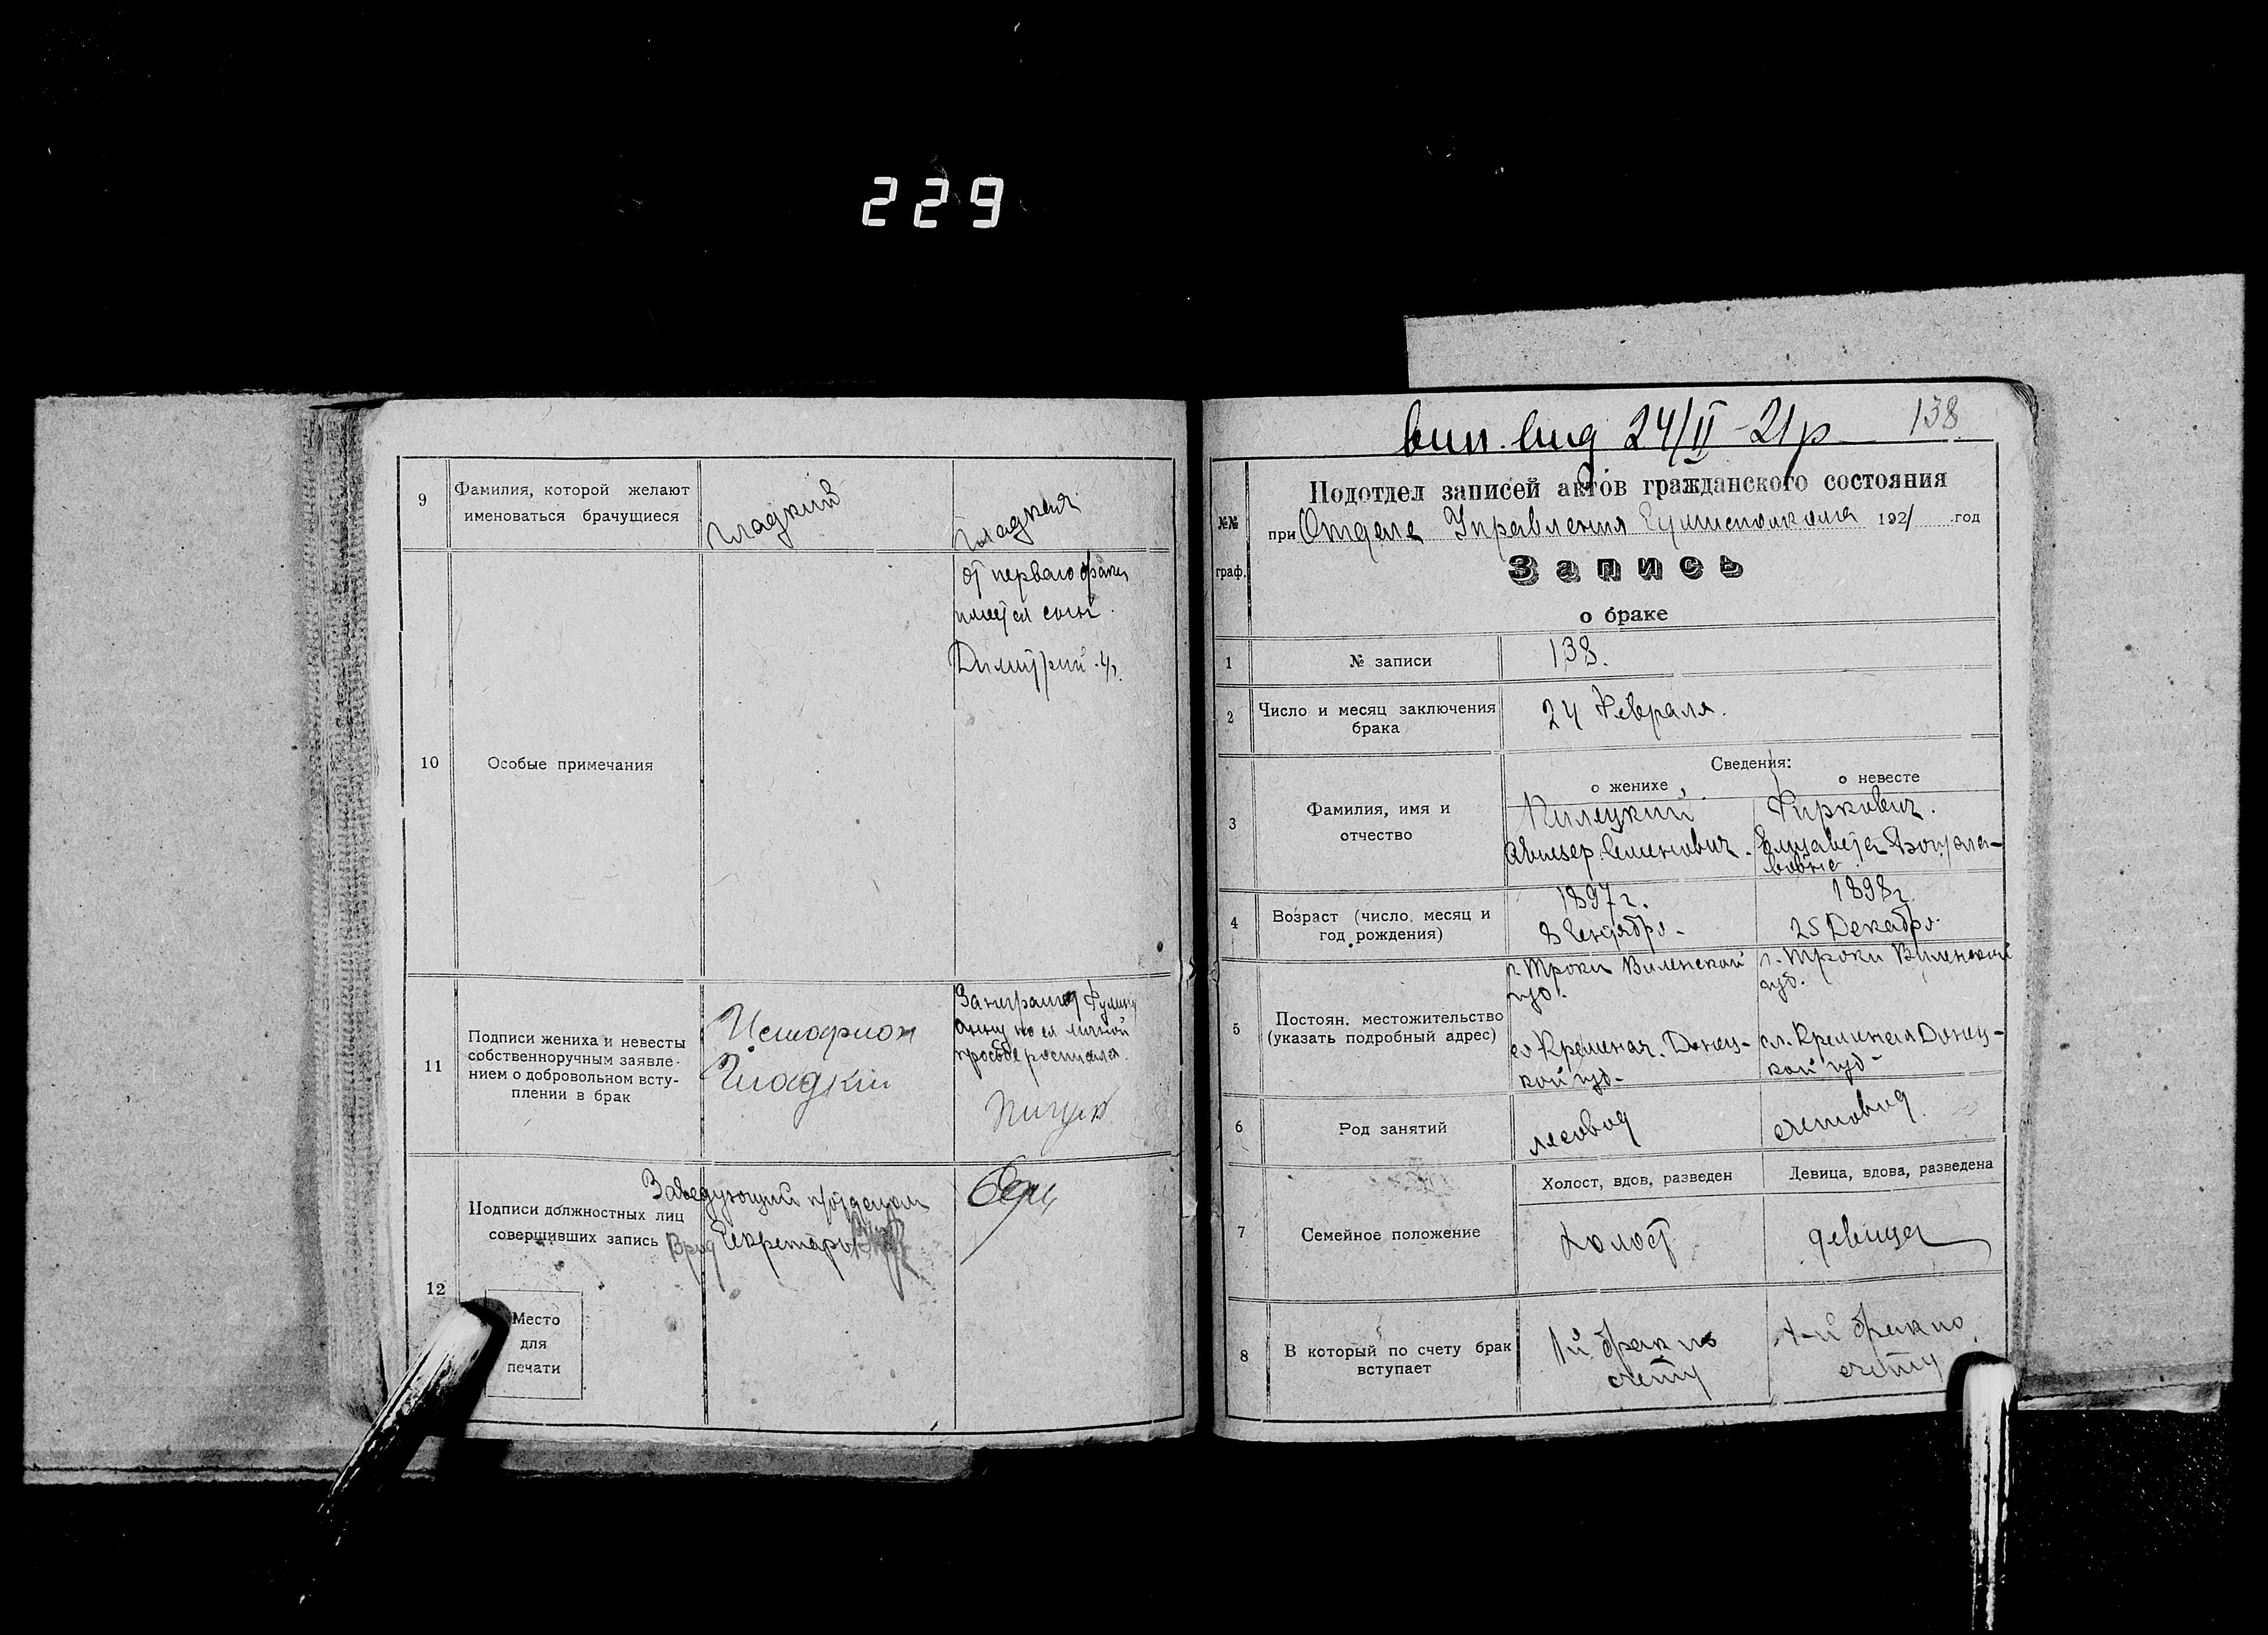 229
9
Фамилия, которой желают
именоваться брачущиеся
Гладкий
Гладкая
10
Особые примечания
от первого брака
имеется сын
Димитрий
11
Подписи жениха и невесты
собственноручным заявле-
нием о добровольном всту-
плении в брак
Гладкий
За неграмотн
Анну по ея личной
просьбе росписался
12
Подписи должностных лиц
совершивших запись
Заведующий п/отделом
Врид Секретарь
Место
для
печати
вип. вид 24/II-21р
138
№№
граф.
Подотдел записей актов гражданского состояния
при Отделе Управления 1921 год
Запись
о браке
1
№ записи
138.
2
Число и месяц заключения
брака
24 Февраля.
3
Фамилия, имя и
отчество
Сведения:
о женихе
о невесте
Пилецкий
Семенович.
Фиркович.
Елизавета
4
Возраст (число, месяц и
год рождения)
1897 г.
8 Сентябрь
1898 г
25 Декабрь
5
Постоян. местожительство
(указать подробный адрес)
г. Троки Виленской
губ.
сл Кременая. Донец-
кой губ-
г. Троки Виленской
губ.
сл. Кременая Донец-
кой губ-
6
Род занятий
лесовод
счетовод
7
Семейное положение
Холост, вдов, разведен
Девица, вдова, разведена
холост
девица
8
В который по счету брак
вступает
1й брак по
счету
1-й брак по
счету